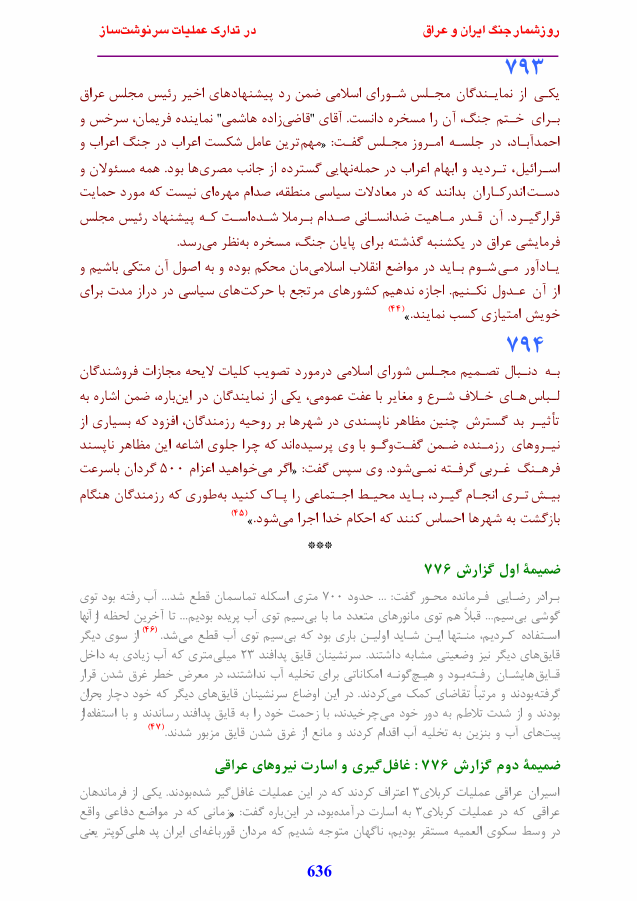 روزشمار جنگ ایران و عراق
در تدارک عملیات سرنوشت‌ساز
۷۹۳
یکـی از نمایـندگان مجـلس شـورای اسلامی ضمن رد پیشنهادهای اخیر رئیس مجلس عراق
بـرای خـتم جنگ، آن را مسخره دانست. آقای "قاضی‌زاده هاشمی" نماینده فریمان، سرخس و
احمدآبـاد، در جلسـه امـروز مجـلس گفـت: «مهم‌ترین عامل شکست اعراب در جنگ اعراب و
اسـرائیل، تـردید و ابهام اعراب در حمله‌نهایی گسترده از جانب مصری‌ها بود. همه مسئولان و
دسـت‌اندرکـاران بدانند که در معادلات سیاسی منطقه، صدام مهره‌ای نیست که مورد حمایت
قرارگیـرد. آن قـدر مـاهیت ضدانسـانی صـدام بـرملا شـده‌اسـت کـه پیشنهاد رئیس مجلس
فرمایشی عراق در یکشنبه گذشته برای پایان جنگ، مسخره به‌نظر می‌رسد.
یـادآور مـی‌شـوم بـاید در مواضع انقلاب اسلامی‌مان محکم بوده و به اصول آن متکی باشیم و
از آن عـدول نکـنیم. اجازه ندهیم کشورهای مرتجع با حرکت‌های سیاسی در دراز مدت برای
خویش امتیازی کسب نمایند.»(۴۴)
۷۹۴
بـه دنـبال تصـمیم مجـلس شورای اسلامی درمورد تصویب کلیات لایحه مجازات فروشندگان
لـباس‌هـای خـلاف شـرع و مغایر با عفت عمومی، یکی از نمایندگان در این‌باره، ضمن اشاره به
تأثیـر بد گسترش چنین مظاهر ناپسندی در شهرها بر روحیه رزمندگان، افزود که بسیاری از
نیـروهای رزمـنده ضـمن گفـت‌وگـو با وی پرسیده‌اند که چرا جلوی اشاعه این مظاهر ناپسند
فرهـنگ غـربی گرفـته نمـی‌شود. وی سپس گفت: «اگر می‌خواهید اعزام ۵۰۰ گردان باسرعت
بیـش‌تـری انجـام گیـرد، بـاید محیـط اجـتماعی را پـاک کنید به‌طوری که رزمندگان هنگام
بازگشت به شهرها احساس کنند که احکام خدا اجرا می‌شود.»(۴۵)
***
ضمیمۀ اول گزارش ۷۷۶
بـرادر رضـایی فـرمانده محـور گفت: ... حدود ۷۰۰ متری اسکله تماسمان قطع شد... آب رفته بود توی
گوشی بی‌سیم... قبلاً هم توی مانورهای متعدد ما با بی‌سیم توی آب پریده بودیم... تا آخرین لحظه ازآنها
اسـتفاده کـردیم، منـتها ایـن شـاید اولیـن باری بود که بی‌سیم توی آب قطع می‌شد.(۴۶) از سوی دیگر
قایق‌های دیگر نیز وضعیتی مشابه داشتند. سرنشینان قایق پدافند ۲۳ میلی‌متری که آب زیادی به داخل
قـایق‌هایشـان رفـته‌بـود و هیـچ‌گونـه امکاناتی برای تخلیه آب نداشتند، در معرض خطر غرق شدن قرار
گرفته‌بودند و مرتباً تقاضای کمک می‌کردند. در این اوضاع سرنشینان قایق‌های دیگر که خود دچار بحران
بودند و از شدت تلاطم به دور خود می‌چرخیدند، با زحمت خود را به قایق پدافند رساندند و با استفاده‌از
پیت‌های آب و بنزین به تخلیه آب اقدام کردند و مانع از غرق شدن قایق مزبور شدند.(۴۷)
ضمیمۀ دوم گزارش ۷۷۶ : غافل‌گیری و اسارت نیروهای عراقی
اسیران عراقی عملیات کربلای۳ اعتراف کردند که در این عملیات غافل‌گیر شده‌بودند. یکی از فرماندهان
عراقی که در عملیات کربلای۳ به اسارت درآمده‌بود، در این‌باره گفت: «زمانی که در مواضع دفاعی واقع
در وسط سکوی العمیه مستقر بودیم، ناگهان متوجه شدیم که مردان قورباغه‌ای ایران پد هلی‌کوپتر یعنی
636